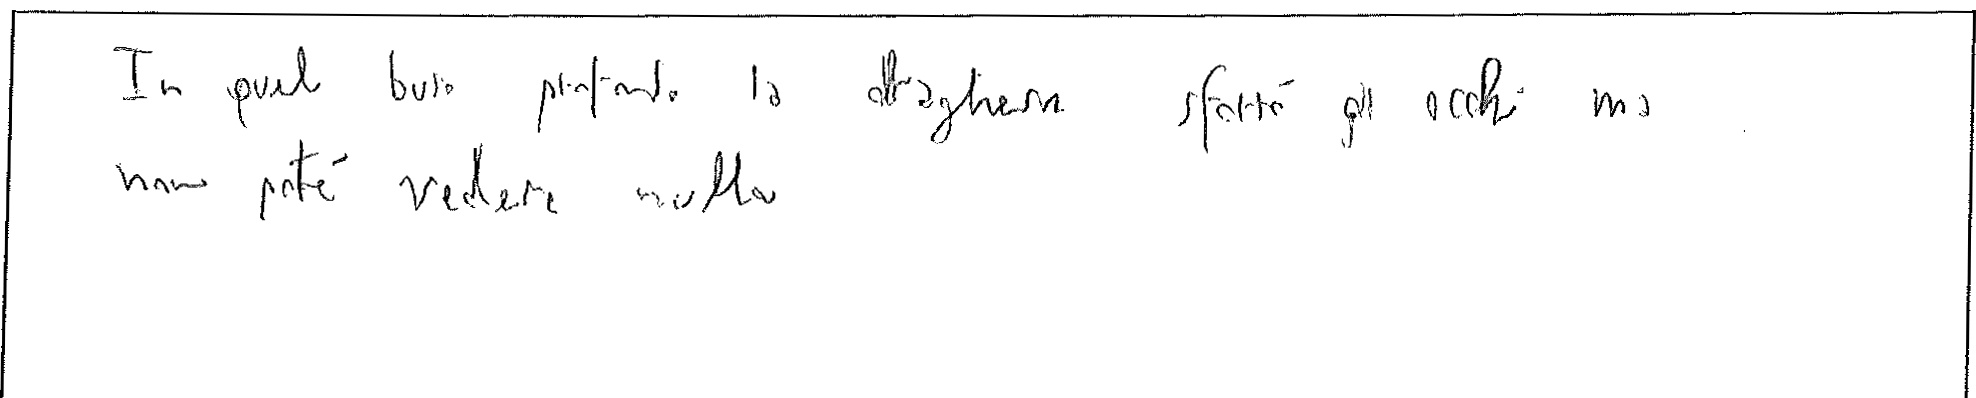 In quel buio profondo la draghessa sfattò gli occhi ma
non poté vedere nulla